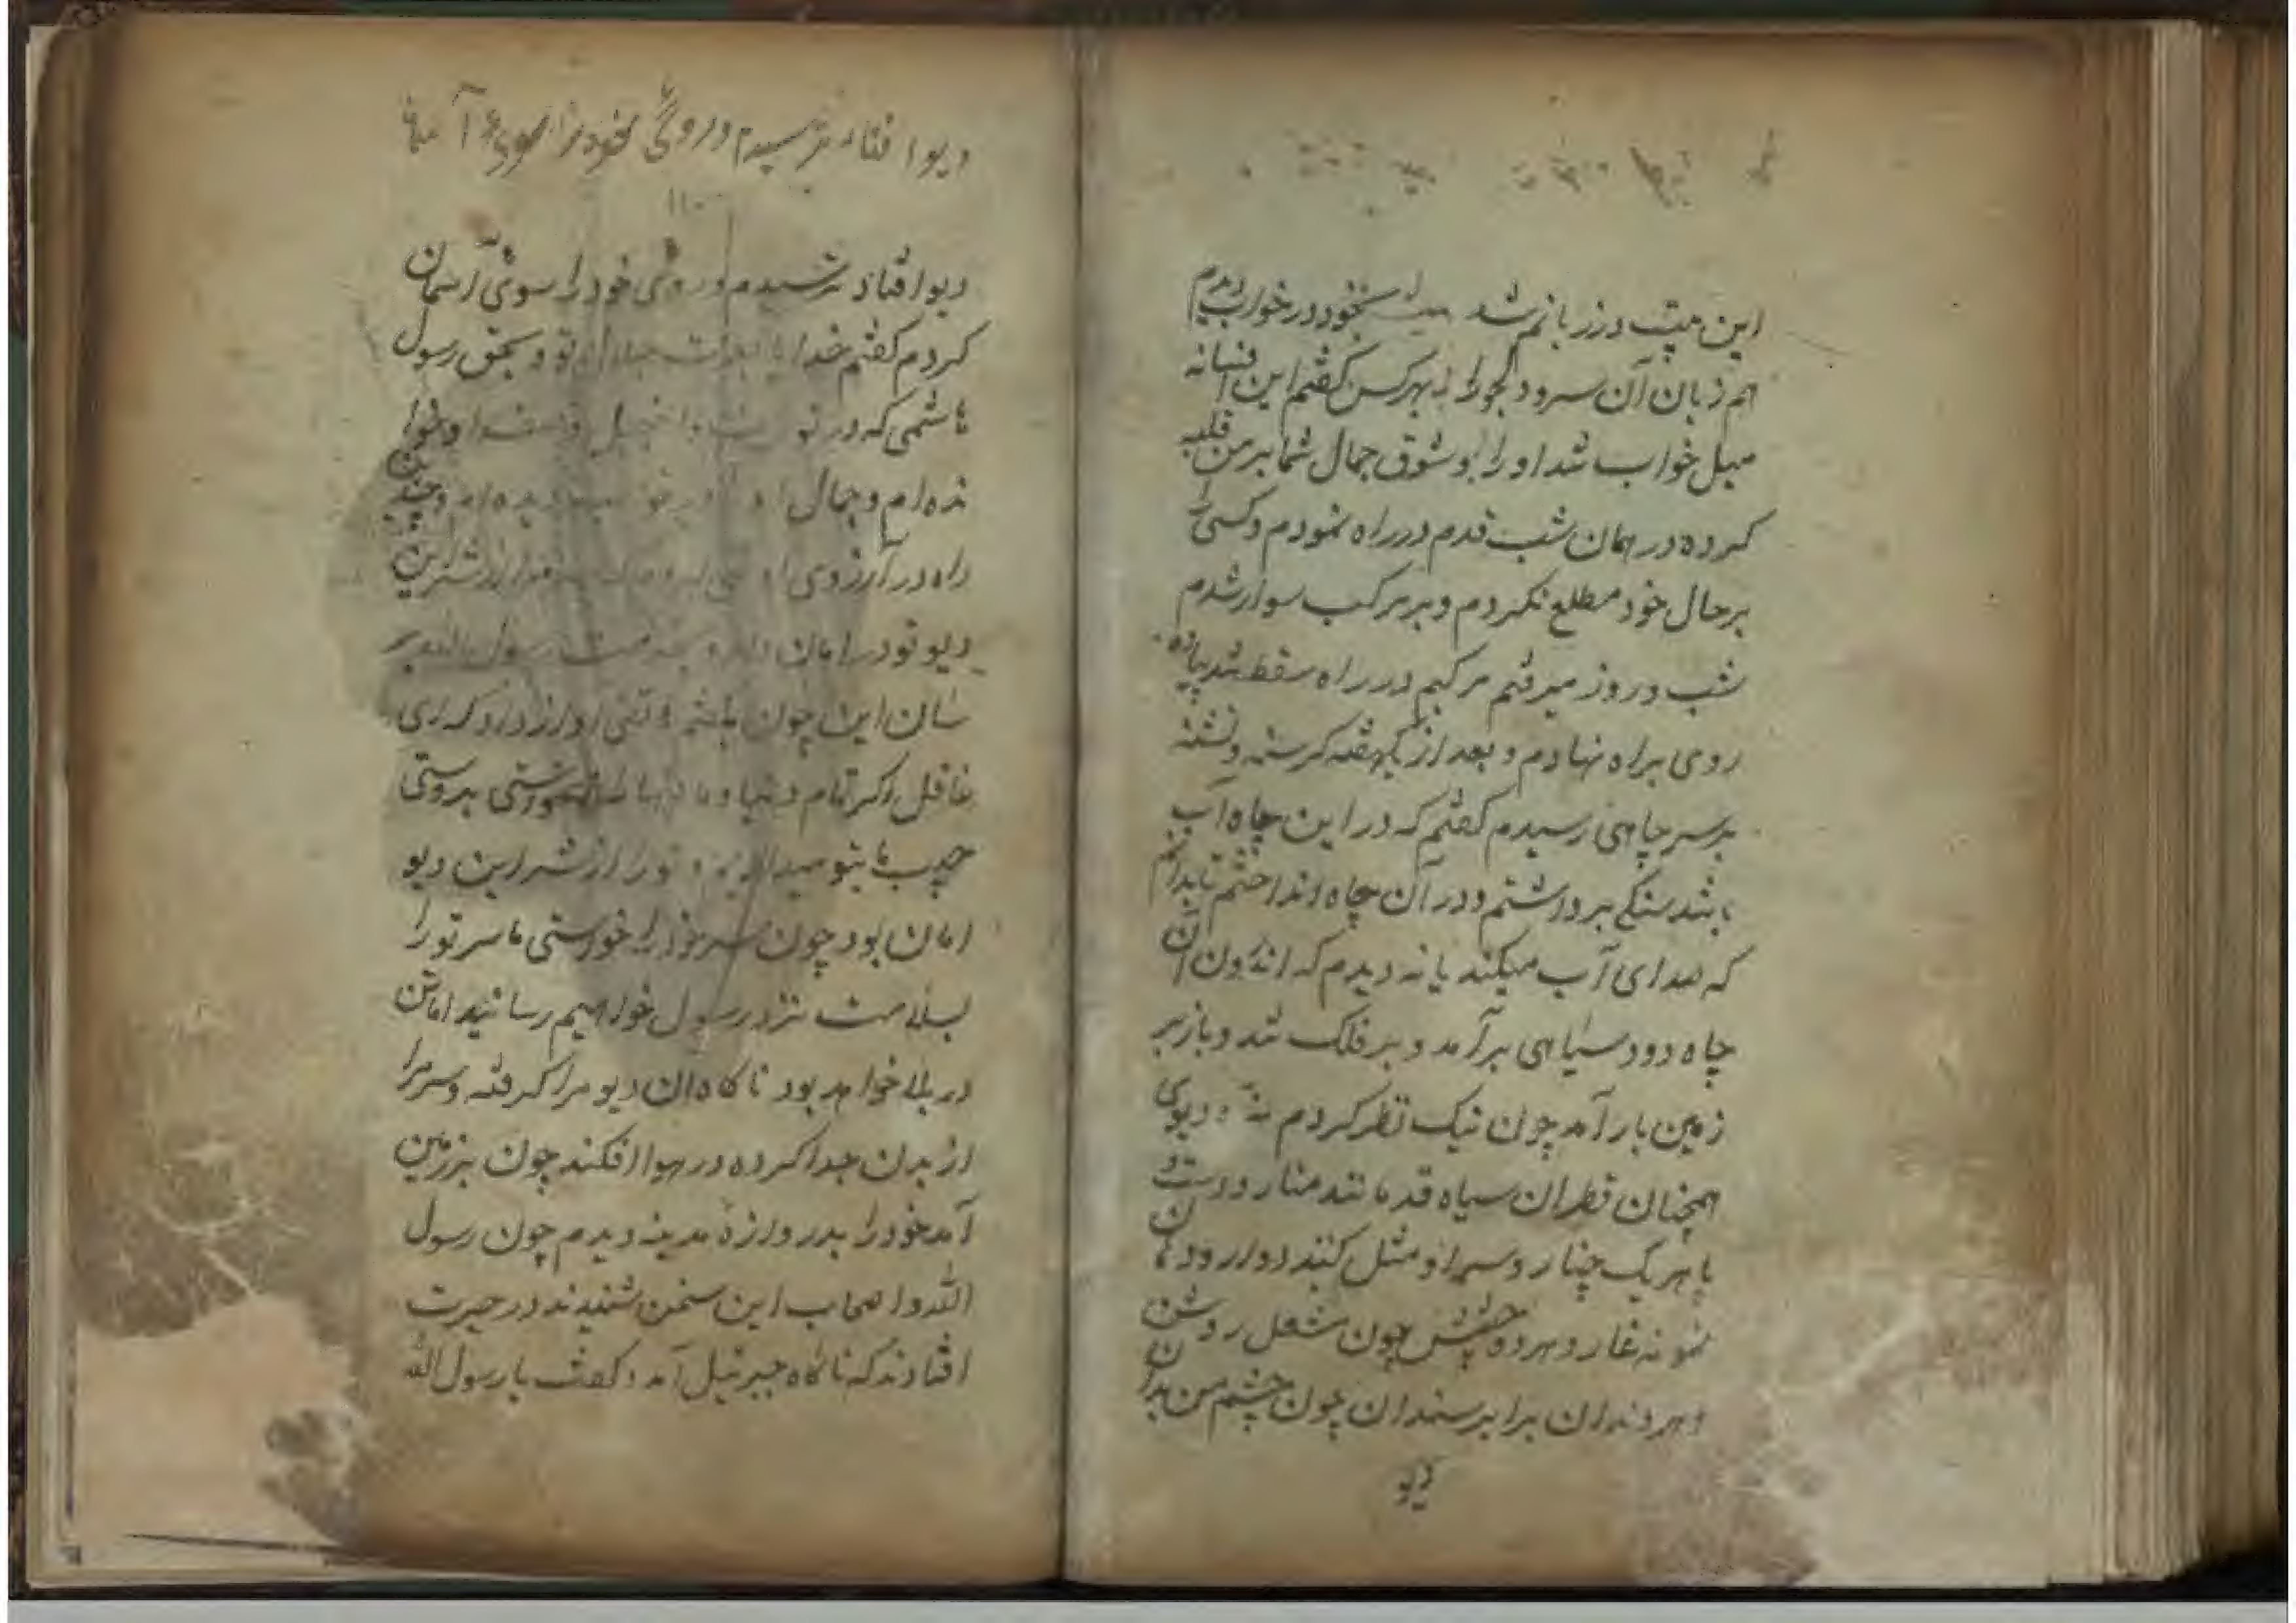 این بیت ورد زبانم شد بخود در خواب دیدم
هم زبان آن سرو دلجو را بهر کس گفتم این افسانه
میل خواب شد او را و شوق جمال شما بر من غلبه
کرده در همان شب قدم در راه نمودم و کسی را
بر حال خود مطلع نکردم و بر مرکب سوار شدم
شب و روز میرفتم مرکبم در راه سقط شد پیاده
روی براه نهادم و بعد از یکهفته کرسنه و تشنه
بر سر چاهی رسیدم گفتم که در این چاه آب
باشد سنکی برداشتم و در آن چاه انداختم تا بدانم
که صدای آب میکند یا نه دیدم که از درون آن
چاه دود سیاهی بر آمد و بر فلک شد و باز بر
زمین بار آمد چون نیک نظر کردم نه دیوی
همچنان قطران سیاه قد مانند منار و دست و
پا هر یک چنار و سر او مثل کنبد دوار و دهان
نمونه غار و هر دو چشمش چون مشعل روشن
و هر دندان برابر سندان چون چشم من بدان
دیو
دیو افتاد ترسیدم و روی خود را سوی آسمان
۱۱۰
دیو افتاد ترسیدم و روی خود را سوی آسمان
کردم گفتم خدایا بعزت جلال تو و بحق رسول
هاشمی که در توریت و انجیل وصف او خوا
نده ام و جمال او را در خواب دیده ام و چندین
راه در آرزوی او از شر این
دیو تو در امان دار و بخدمت رسول الله بر
سان این چون گفتم هاتفی آواز داد که ای
غافل اگر تمام دنیا و ما فیها خواستی بدوستی
حبیب ما بتو میدادیم و تو را از شر این دیو
امان بود چون سر خود را خواستی ما سر تو را
بسلامت نزد رسول خواهیم رسانید اما تن
در بلا خواهد بود ناکاه آن دیو مرا کرفته و سر مرا
از بدن جدا کرده در هوا افکند چون بر زمین
آمد خود را بدروازهٔ مدینه دیدم چون رسول
الله و اصحاب این سخن شنیدند در حیرت
افتادند که ناکاه جبرئیل آمد و گفت یا رسول الله